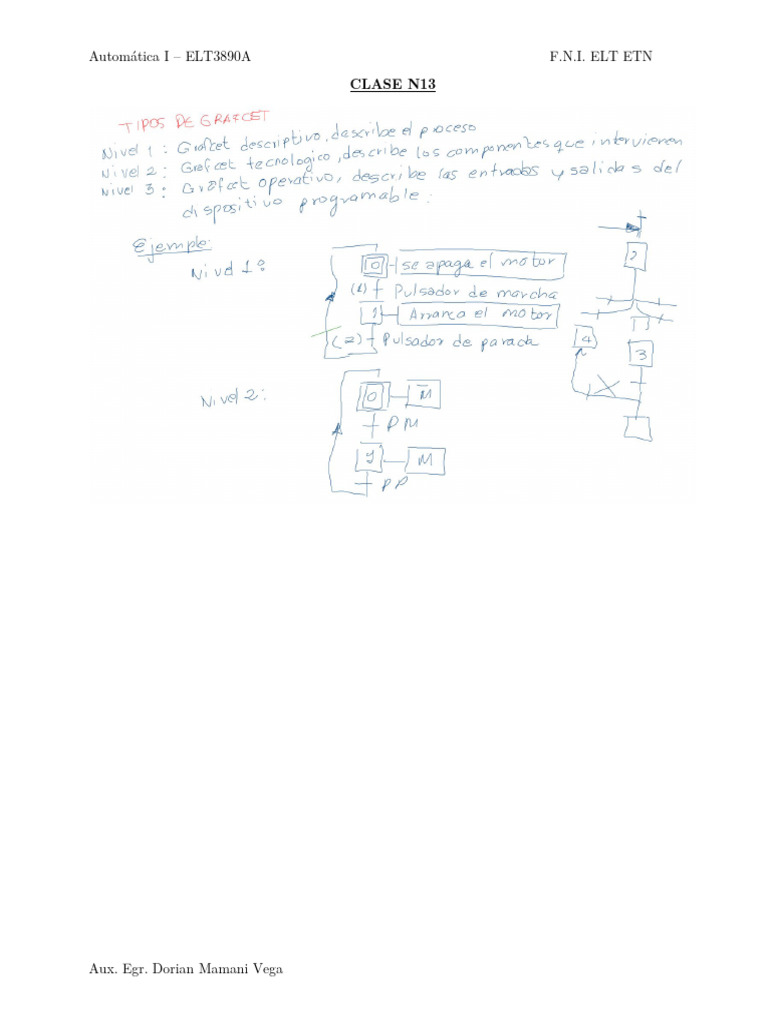 Automática I – ELT3890A F.N.I. ELT ETN
CLASE N13
TIPOS DE GRAFCET
Nivel 1 : Grafcet descriptivo, describe el proceso
Nivel 2 : Grafcet tecnologico, describe los componentes que intervienen
Nivel 3 : Grafcet operativo, describe las entradas y salidas del
dispositivo programable :
Ejemplo:
Nivel 1:
0 se apaga el motor
(1) Pulsador de marcha
1 Arranca el motor
(2) Pulsador de parada
2
3
4
Nivel 2:
0 M̅
PM
1 M
PP
Aux. Egr. Dorian Mamani Vega